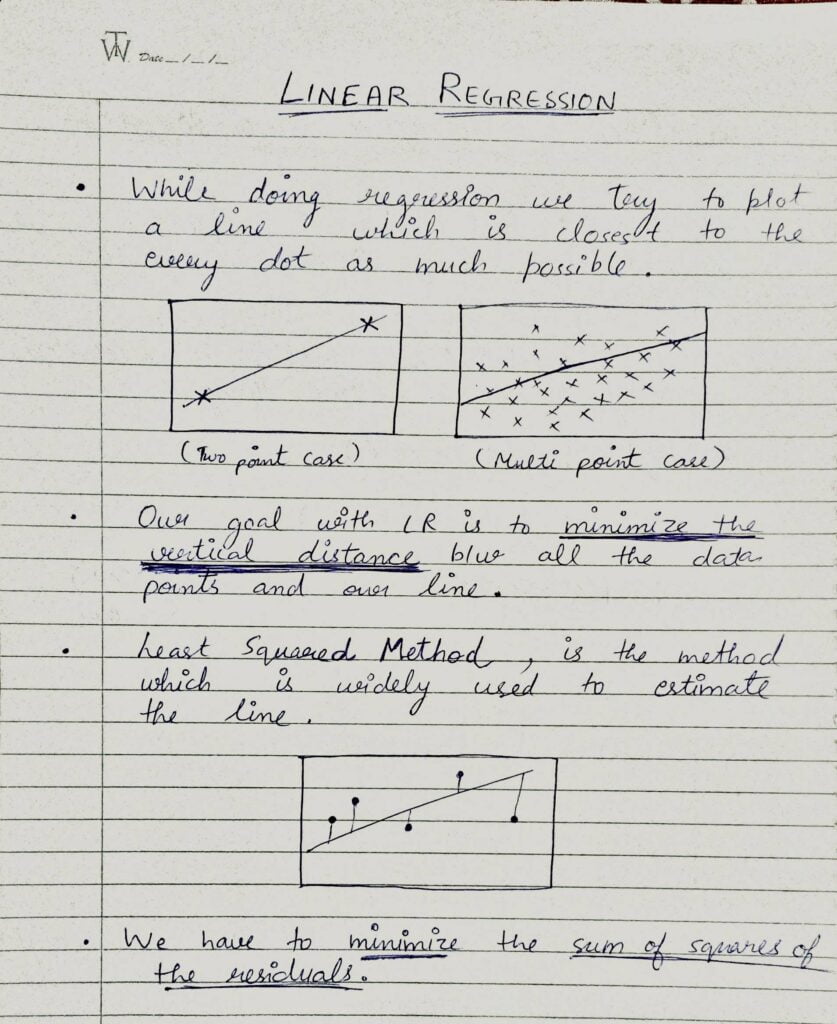 Date _/_/_
LINEAR REGRESSION
• While doing regression we try to plot
a line which is closest to the
every dot as much possible.
(Two point case)
(Multi point case)
• Our goal with LR is to minimize the
vertical distance b/w all the data
points and our line.
• Least Squared Method, is the method
which is widely used to estimate
the line.
• We have to minimize the sum of squares of
the residuals.